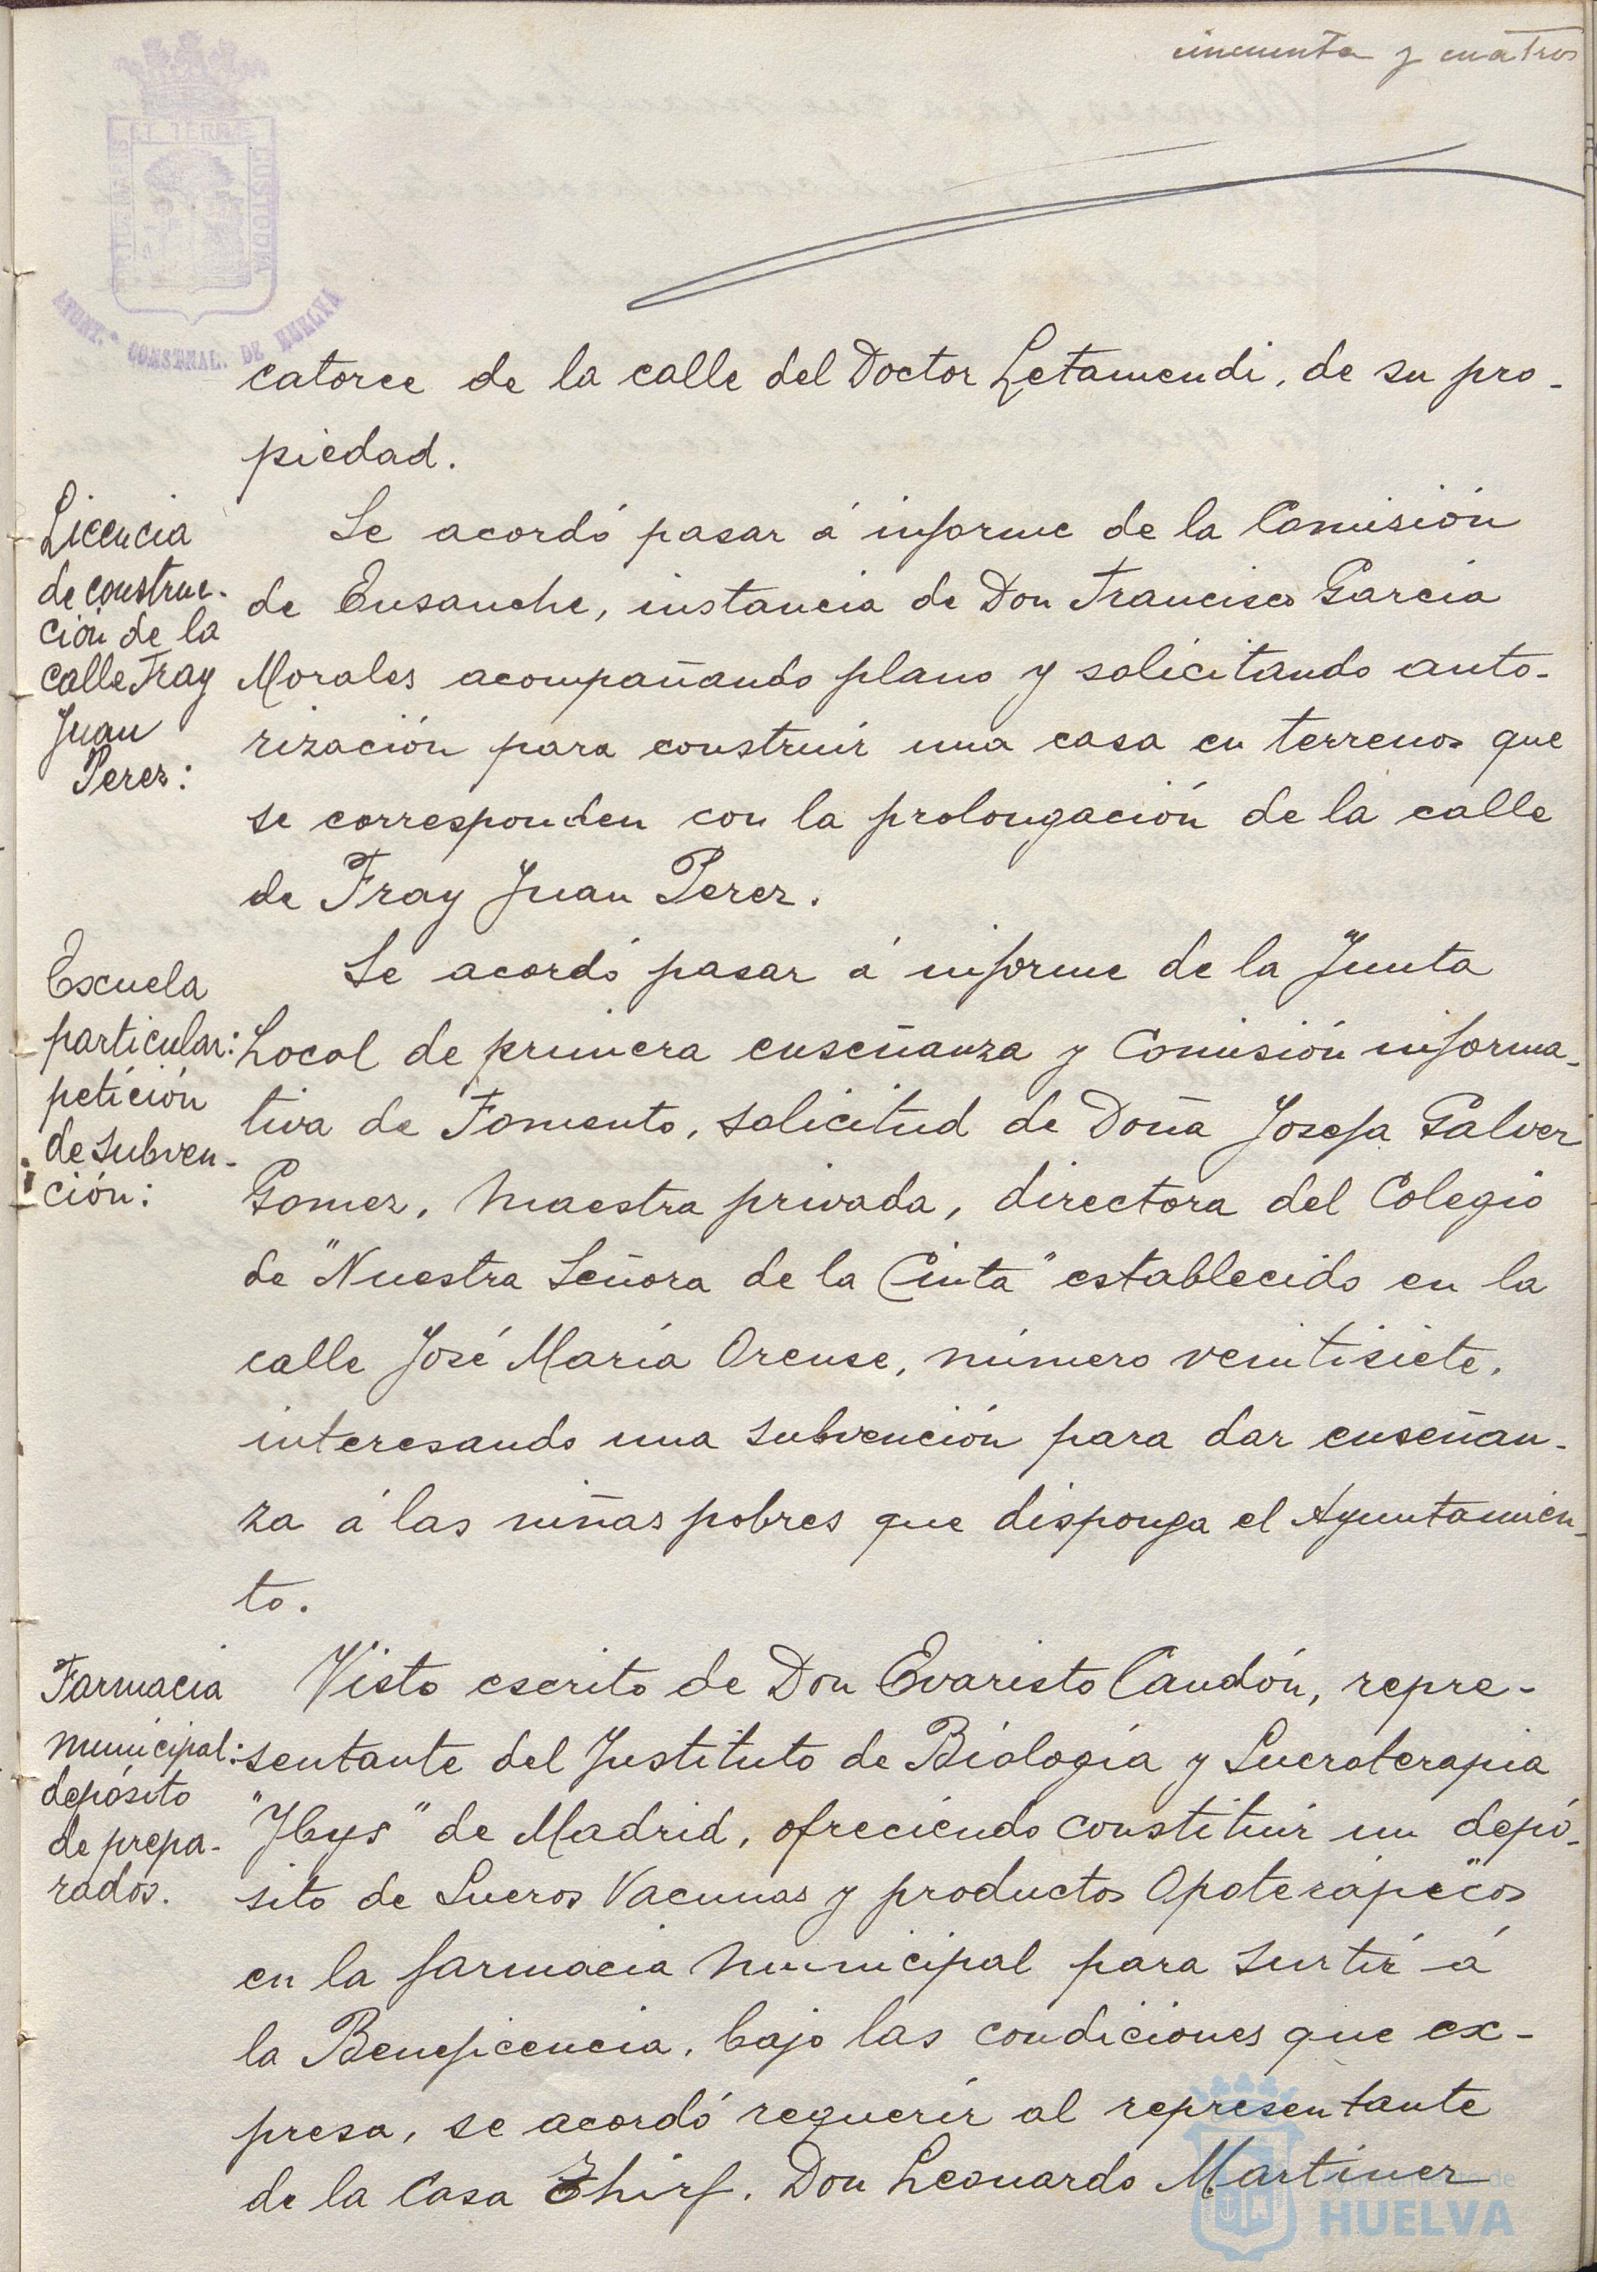 cincuenta y cuatro
PORTUS MARIS ET TERRÆ CUSTODIA
AYUNT.º CONST.NAL. DE HUELVA
catorce de la calle del Doctor Letamendi, de su pro-
piedad.
Licencia
de construc-
ción de la
calle Fray
Juan
Perez:
Se acordó pasar á informe de la Comisión
de Ensanche, instancia de Don Francisco Garcia
Morales acompañando plano y solicitando auto-
rización para construir una casa en terrenos que
se corresponden con la prolongación de la calle
de Fray Juan Perez.
Escuela
particular:
petición
de subven-
ción:
Se acordó pasar á informe de la Junta
Local de primera enseñanza y Comisión informa-
tiva de Fomento, solicitud de Doña Josefa Galvez
Gomez, maestra privada, directora del Colegio
de "Nuestra Señora de la Cinta" establecido en la
calle José María Orense, número veintisiete,
interesando una subvención para dar enseñan-
za á las niñas pobres que disponga el Ayuntamien-
to.
Farmacia
municipal:
depósito
de prepa-
rados.
Visto escrito de Don Evaristo Candón, repre-
sentante del Instituto de Biología y Sueroterapia
"Ibys" de Madrid, ofreciendo constituir un depó-
sito de Sueros Vacunas y productos Opoterápicos
en la farmacia municipal para surtir á
la Beneficencia, bajo las condiciones que ex-
presa, se acordó requerir al representante
de la Casa Don Leonardo Martinez
Ayuntamiento de
HUELVA